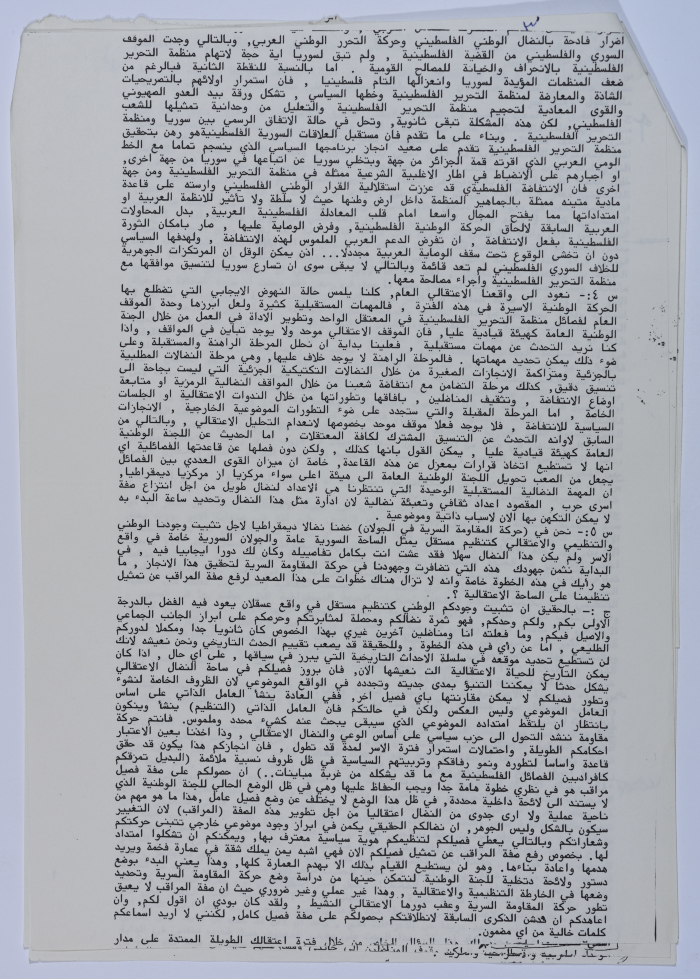 اضرار فادحة بالنضال الوطني الفلسطيني وحركة التحرر الوطني العربي, وبالتالي وجدت الموقف
السوري والفلسطيني من القضية الفلسطينية , ولم تبق لسوريا اية حجة لاتهام منظمة التحرير
الفلسطينية بالانحراف والخيانة للمصالح القومية . اما بالنسبة للنقطة الثانية فبالرغم من
ضعف المنظمات المؤيدة لسوريا وانعزالها التام فلسطينيا , فان استمرار اولائهم بالتصريحات
الشاذة والمعارضة لمنظمة التحرير الفلسطينية وخطها السياسي , تشكل ورقة بيد العدو الصهيوني
والقوى المعادية لتحجيم منظمة التحرير الفلسطينية والتعليل من وحدانية تمثيلها للشعب
الفلسطيني, لكن هذه المشكلة تبقى ثانوية, وتحل في حالة الاتفاق الرسمي بين سوريا ومنظمة
التحرير الفلسطينية . وبناء على ما تقدم فان مستقبل العلاقات السورية الفلسطينيةهو رهن بتحقيق
منظمة التحرير الفلسطينية تقدم على صعيد انجاز برنامجها السياسي الذي ينسجم تماما مع الخط
الومي العربي الذي اقرته قمة الجزائر من جهة وبتخلي سوريا عن اتباعها في سوريا من جهة اخرى,
او اجبارهم على الانضباط في اطار الاغلبية الشرعية ممثله في منظمة التحرير الفلسطينية ومن جهة
اخرى فان الانتفاضة الفلسطيةي قد عززت استقلالية القرار الوطني الفلسطيني وارسته على قاعدة
مادية متينه ممثلة بالجماهير المنظمة داخل ارض وطنها حيث لا سلطة ولا تأثير للانظمة العربية او
امتداداتها مما يفتح المجال واسعا امام قلب المعادلة الفلسطينية العربية, بدل المحاولات
العربية السابقة لالحاق الحركة الوطنية الفلسطينية, وفرض الوصاية عليها , صار بامكان الثورة
الفلسطينية بفعل الانتفاضة , ان تفرض الدعم العربي الملموس لهذه الانتفاضة , ولهدفها السياسي
دون ان تخشى الوقوع تحت سقف الوصاية العربية مجددا... اذن يمكن الوقل ان المرتكزات الجوهرية
للخلاف السوري الفلسطيني لم تعد قائمة وبالتالي لا يبقى سوى ان تسارع سوريا لتنسيق موافقها مع
منظمة التحرير الفلسطينية واجراء مصالحة معها.
س ٤:- نعود الى واقعنا الاعتقالي العام, كلنا يلمس حالة النهوض الايجابي التي تضطلع بها
الحركة الوطنية الاسيرة في هذه الفترة , فالمهمات المستقبلية كثيرة ولعل ابرزها وحدة الموقف
العام لفصائل منظمة التحرير الفلسطينية في المعتقل الواحد وتطوير الاداة في العمل من خلال الجنة
الوطنية العامة كهيئة قيادية عليا, فان الموقف الاعتقالي موحد ولا يوجد تباين في المواقف , واذا
كنا نريد التحدث عن مهمات مستقبلية , فعلينا بداية ان نحلل المرحلة الراهنة والمستقبلة وعلى
ضوء ذلك يمكن تحديد مهماتها . فالمرحلة الراهنة لا يوجد خلاف عليها, وهي مرحلة النضالات المطلبية
بالجزئية ومتراكمة الانجازات الصغيرة من خلال النضالات التكتيكية الجزئية التي ليست بحاجة الى
تنسيق دقيق, كذلك مرحلة التضامن مع انتفاضة شعبنا من خلال المواقف النضالية الرمزية او متابعة
اوضاع الانتفاضة , وتثقيف المناضلين , بافاقها وتطوراتها من خلال الندوات الاعتقالية او الجلسات
الخاصة , اما المرحلة المقبلة والتي ستجدد على ضوء التطورات الموضوعية الخارجية , الانجازات
السياسية للانتفاضة , فلا يوجد فعلا موقف موحد بخصوصها لانعدام التحليل الاعتقالي , وبالتالي من
السابق لاوانه التحدث عن التنسيق المشترك لكافة المعتقلات , اما الحديث عن اللجنة الوطنية
العامة كهيئة قيادية عليا , يمكن القول بانها كذلك , ولكن دون فصلها عن قاعدتها الفصائلية اي
انها لا تستطيع اتخاذ قرارات بمعزل عن هذه القاعدة, خاصة ان ميزان القوى العددي بين الفصائل
يجعل من الصعب تحويل اللجنة الوطنية العامة الى هيئة اعلى سواء مركزيا ار مركزيا ديمقراطيا,
ان المهمة النضالية المستقبلية الوحيدة التي تنتظرنا هي الاعداد لنضال طويل من اجل انتزاع صفة
اسرى حرب , المقصود اعداد ثقافي وتعبئة نضالية لان ادارة مثل هذا النضال وتحديد ساعة البدء به
لا يمكن التكهن بها الان لاسباب ذاتية وموضوعية .
س ٥:- نحن في (حركة المقاومة السرية في الجولان) خضنا نضالا ديمقراطيا لاجل تثبيت وجودنا الوطني
والتنظيمي والاعتقالي كتنظيم مستقل يمثل الساحة السورية عامة والجولان السورية خاصة في واقع
الاسر ولم يكن هذا النضال سهلا فقد عشت انت بكامل تفاصيله وكان لك دورا ايجابيا فيه , في
البداية نثمن جهودك هذه التي تضافرت وجهودنا في حركة المقاومة السرية لتحقيق هذا الانجاز , ما
هو رأيك في هذه الخطوة خاصة وانه لا تزال هناك خطوات على هذا الصعيد لرفع صفة المراقب عن تمثيل
تنظيمنا على الساحة الاعتقالية ؟.
ج :- بالحقيق ان تثبيت وجودكم الوطني كتنظيم مستقل في واقع عسقلان يعود فيه الفضل بالدرجة
الاولى بكم, ولكم وحدكم, فهو ثمرة نضالكم ومحصلة لمثابرتكم وحرصكم على ابراز الجانب الجماعي
والاصيل فيكم, وما فعلته انا ومناضلين آخرين غيري بهذا الخصوص كان ثانويا جدا ومكملا لدوركم
الطليعي , اما عن رأي في هذه الخطوة , وللحقيقة قد يصعب تقييم الحدث التاريخي ونحن نعيشه لانك
لن تستطيع تحديد موقعه في سلسلة الاحداث التاريخية التي يبرز في سياقها , على اي حال , اذا كان
يمكن التاريخ للحياة الاعتقالية الت نعيشها الان, فان بروز فصيلكم في ساحة النضال الاعتقالي
يشكل حدثا لا يمكننا التنبؤ بمدى جديته وتجدده في الواقع الموضوعي لان الظروف الخاصة لنشوء
وتطور فصيلكم لا يمكن مقارنتها باي فصيل آخر, ففي العادة ينشأ العامل الذاتي على اساس
العامل الموضوعي وليس العكس ولكن في حالتكم فان العامل الذاتي (التنظيم) ينشأ ويتكون
بانتظار ان يلتقط امتداده الموضوعي الذي سيبقى يبحث عنه كشيء محدد وملموس. فانتم حركة
مقاومة ننشد التحول الى حزب سياسي على اساس الوعي والنضال الاعتقالي , وذا اخذنا بعين الاعتبار
احكامكم الطويلة, واحتمالات استمرار فترة الاسر لمدة قد تطول , فان انجازكم هذا يكون قد حقق
قاعدة واساسا لتطوره ونمو رفاقكم وتربيتهم السياسية في ظل ظروف نسبية ملائمة (البديل تمزقكم
كافراديين الفصائل الفلسطينية مع ما قد يشكله من غربة مباينات..) ان حصولكم على صفة فصيل
مراقب هو في نظري خطوة هامة جدا ويجب الحفاظ عليها وهي في ظل الوضع الحالي للجنة الوطنية الذي
لا يستند الى لائحة داخلية محددة, في ظل هذا الوضع لا يختلف عن وضع فصيل عامل ,هذا ما هو مهم من
ناحية عملية ولا ارى جدوى من النضال اعتقاليا من اجل تطوير هذه الصفة (المراقب) لان التغيير
سيكون بالشكل وليس الجوهر, ان نضالكم الحقيقي يكمن في ابراز وجود موضوعي خارجي تتبنى حركتكم
وشعاراتكم وبالتالي يعطي فصيلكم لتنظيمكم هوية سياسية معترف بها, ويمكنكم ان تشكلوا امتداد
لها. بخصوص رفع صفة المراقب عن تمثيل فصيلكم الان فهي اشبه بمن يملك شقة في عمارة فخمة ويريد
هدمها واعادة بناءها. وهو لن يستطيع القيام بذلك الا بهدم العمارة كلها, وهذا يعني البدء بوضع
دستور ولائحة دتظلية للجنة الوطنية لنتمكن حينها من دراسة وضع حركة المقاومة السرية وتحديد
وضعها في الخارطة التنظيمية والاعتقالية , وهذا غير عملي وغير ضروري حيث ان صفة المراقب لا يعيق
تطور حركة المقاومة السرية وعقب دورها الاعتقالي النشيط , ولقد كان بودي ان اقول لكم, وان
اعاهدكم ان فدشن الذكرى السابقة لانطلاقتكم بحصولكم على صفة فصيل كامل, لكنني لا اريد اسماعكم
كلمات خالية من اي مضمون.
هذا السؤال الخاص من خلال فترة اعتقالك الطويلة الممتدة على مدار